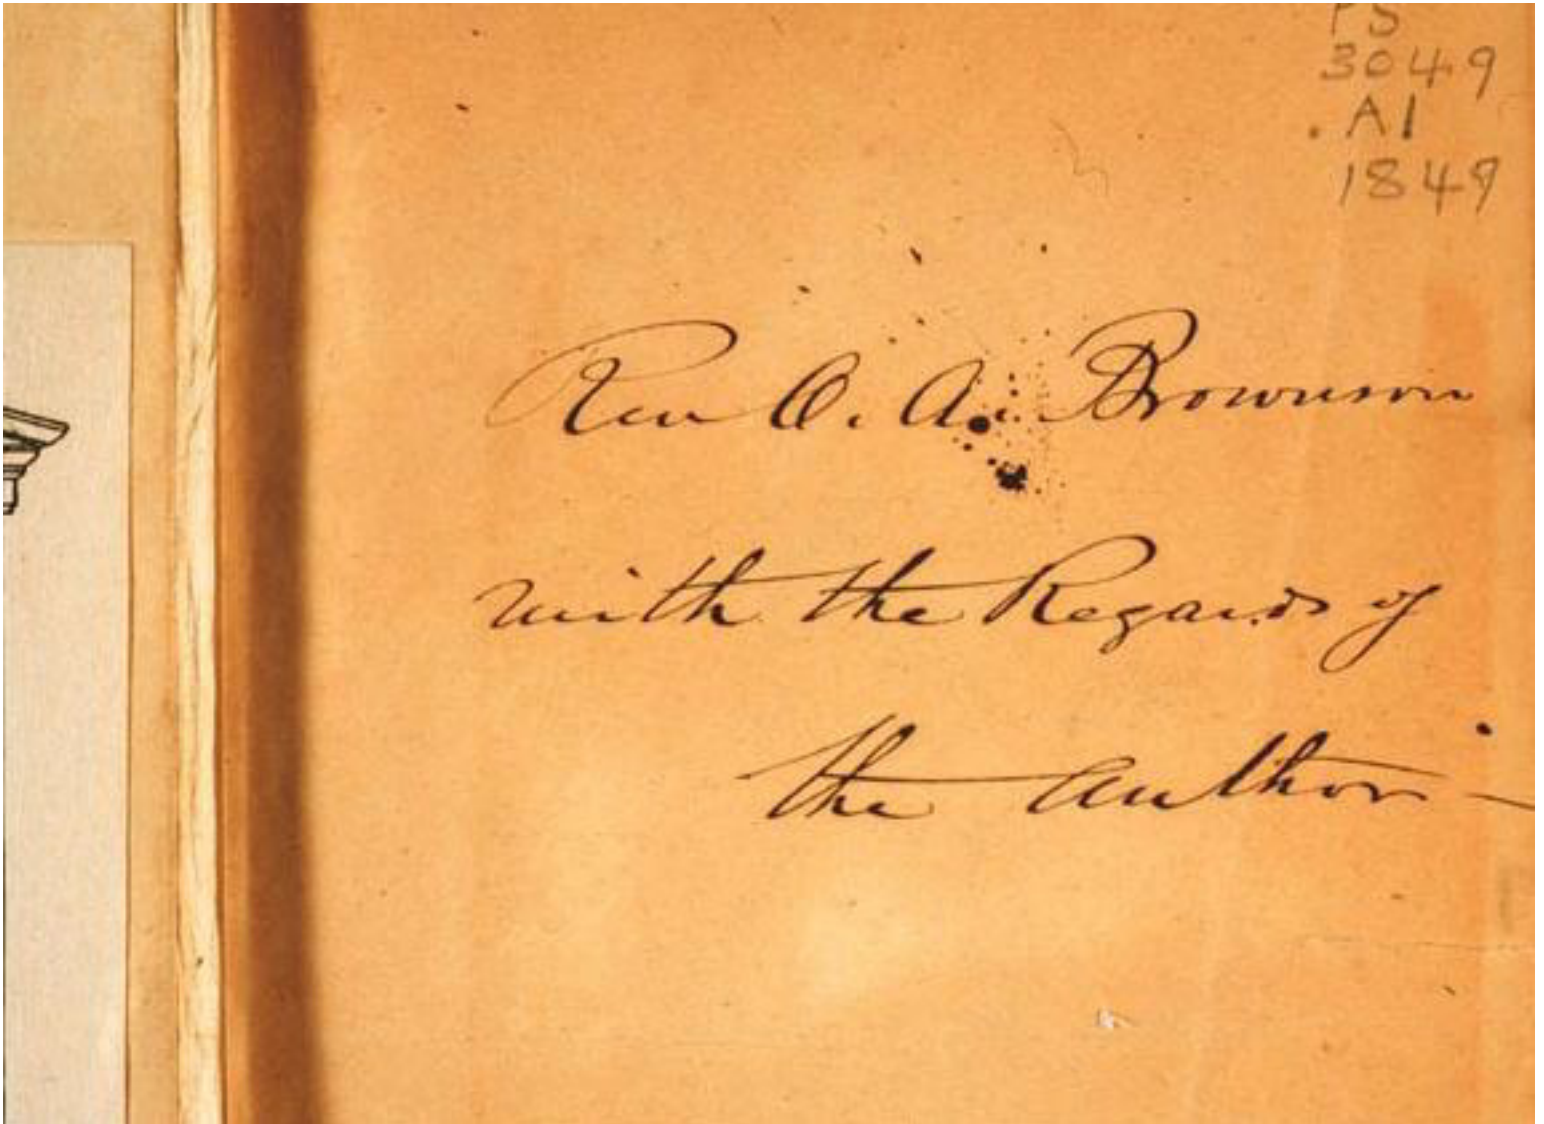 PS
3049
.A1
1849
Rev O. A. Brownson
with the Regards of
the Author -